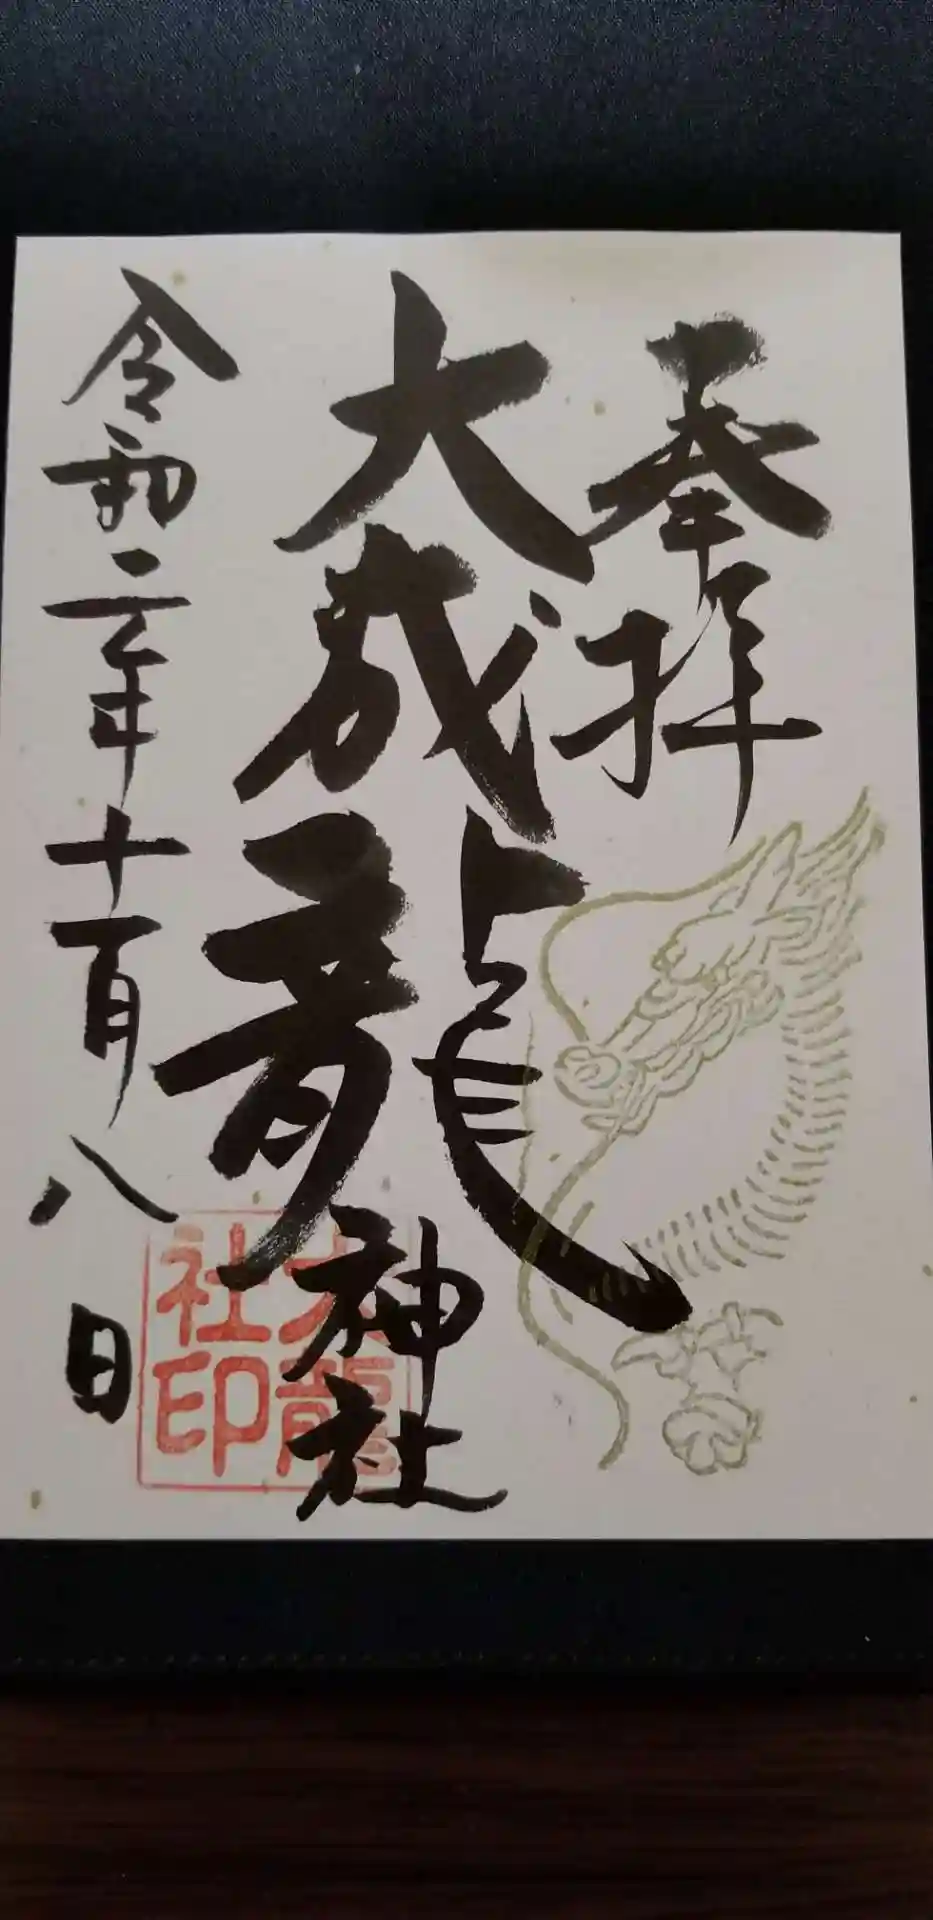 奉拝
大成龍神社
令和二年十一月八日
大龍
社印